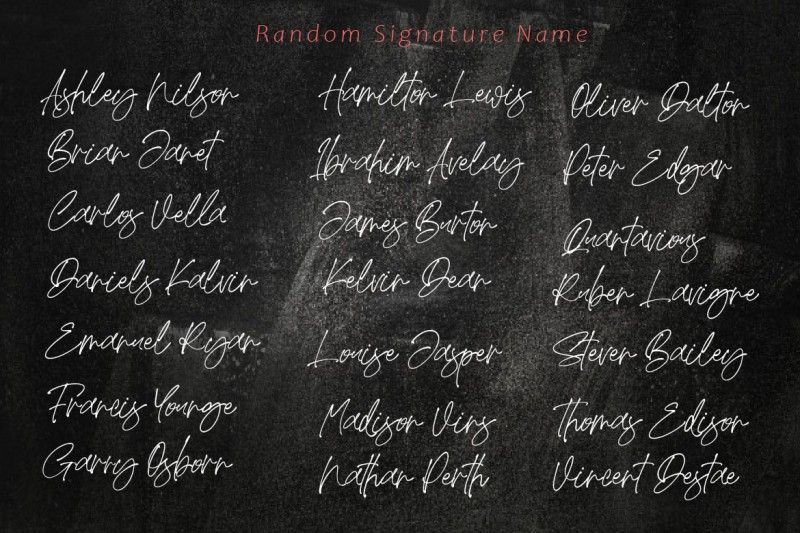 Random Signature Name
Ashley Nilson
Brian Janet
Carlos Vella
Daniels Kalvin
Emanuel Ryan
Francis Younge
Garry Osborn
Hamilton Lewis
Ibrahim Avelay
James Burton
Kelvin Dean
Louise Jasper
Madison Virs
Nathan Perth
Oliver Dalton
Peter Edgar
Quantavious
Ruben Lavigne
Steven Bailey
Thomas Edison
Vincent Destae